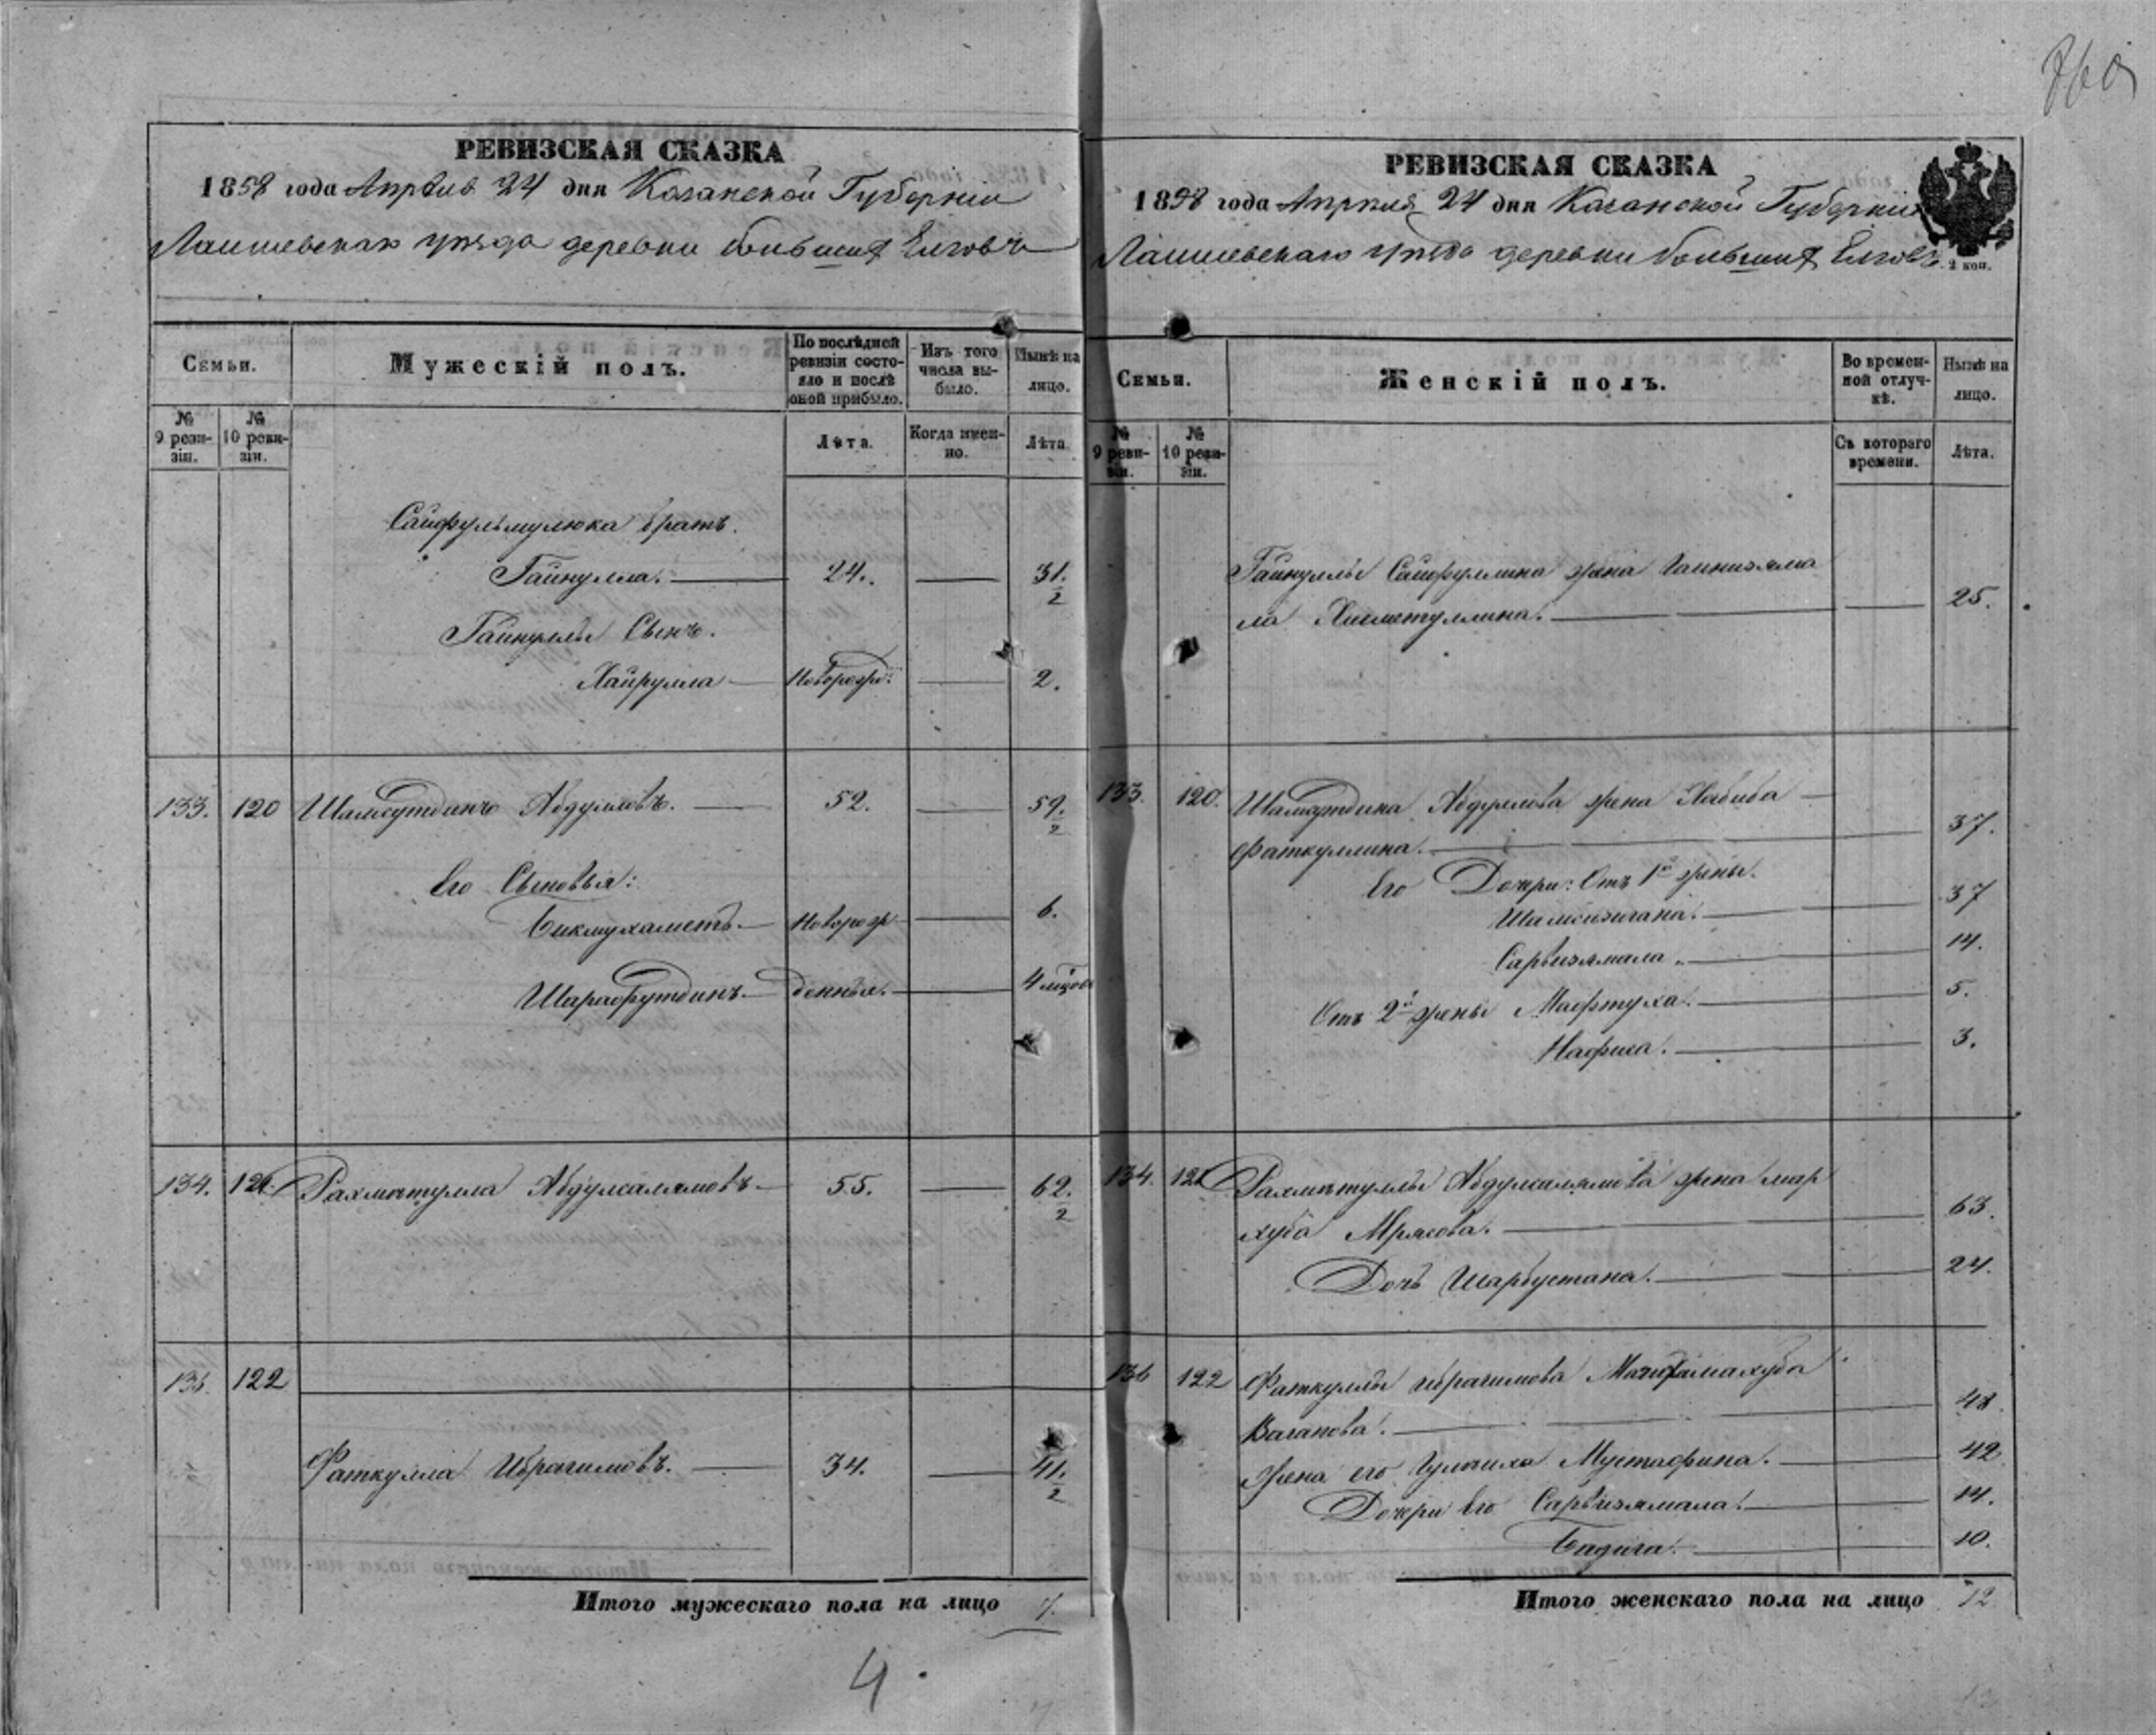 РЕВИЗСКАЯ СКАЗКА
1858 года Апрѣля 24 дня Казанской Губерніи
Лаишевскаго уѣзда деревни большихъ Елговъ
Семьи.
Мужескій полъ.
По послѣдней ревизіи состояло и послѣ оной прибыло.
Изъ того числа выбыло.
Нынѣ на лицо.
№ 9 ревизіи.
№ 10 ревизіи.
Лѣта.
Когда именно.
Лѣта.
Сайфульмулюка братъ.
Гайнулла. 24. 31.
2
Гайнуллы Сынъ.
Хайрулла Новорожд: 2.
133. 120 Шамсутдинъ Абдулловъ. 52. 59.
2
Его Сыновья:
Бикмухаметъ. Новорож 6.
Шарафутдинъ. денные. 4
134. 121 Рахматулла Абдулсалямовъ 55. 62.
2
136. 122
Фаткулла Ибрагимовъ. 34. 41.
2
Итого мужескаго пола на лицо 7.
4
РЕВИЗСКАЯ СКАЗКА
1858 года Апрѣля 24 дня Казанской Губерніи
Лаишевскаго уѣзда деревни большихъ Елговъ
2 коп.
Семьи.
Женскій полъ.
Во временной отлучкѣ.
Нынѣ на лицо.
№ 9 ревизіи.
№ 10 ревизіи.
Съ котораго времени.
Лѣта.
Гайнуллы Сайфуллина жена
ла Хисметуллина. 25.
133. 120. Шамсутдина Абдуллова жена Хабиба
Фаткуллина. 37.
Его Дочери: Отъ 1й жены.
Шамсизигана. 37
Сарвизямала. 14.
Отъ 2й жены Мафтуха. 5.
Нафиса. 3.
134. 121 Рахматуллы Абдулсалямова жена мар
хуба Мрясова. 63.
Дочь Шарбустана. 24.
136 122 Фаткуллы Ибрагимова
Ваганова. 48.
Жена его Мустафина. 42
Дочери Его Сарвизямала. 14.
Бадига. 10.
Итого женскаго пола на лицо 12